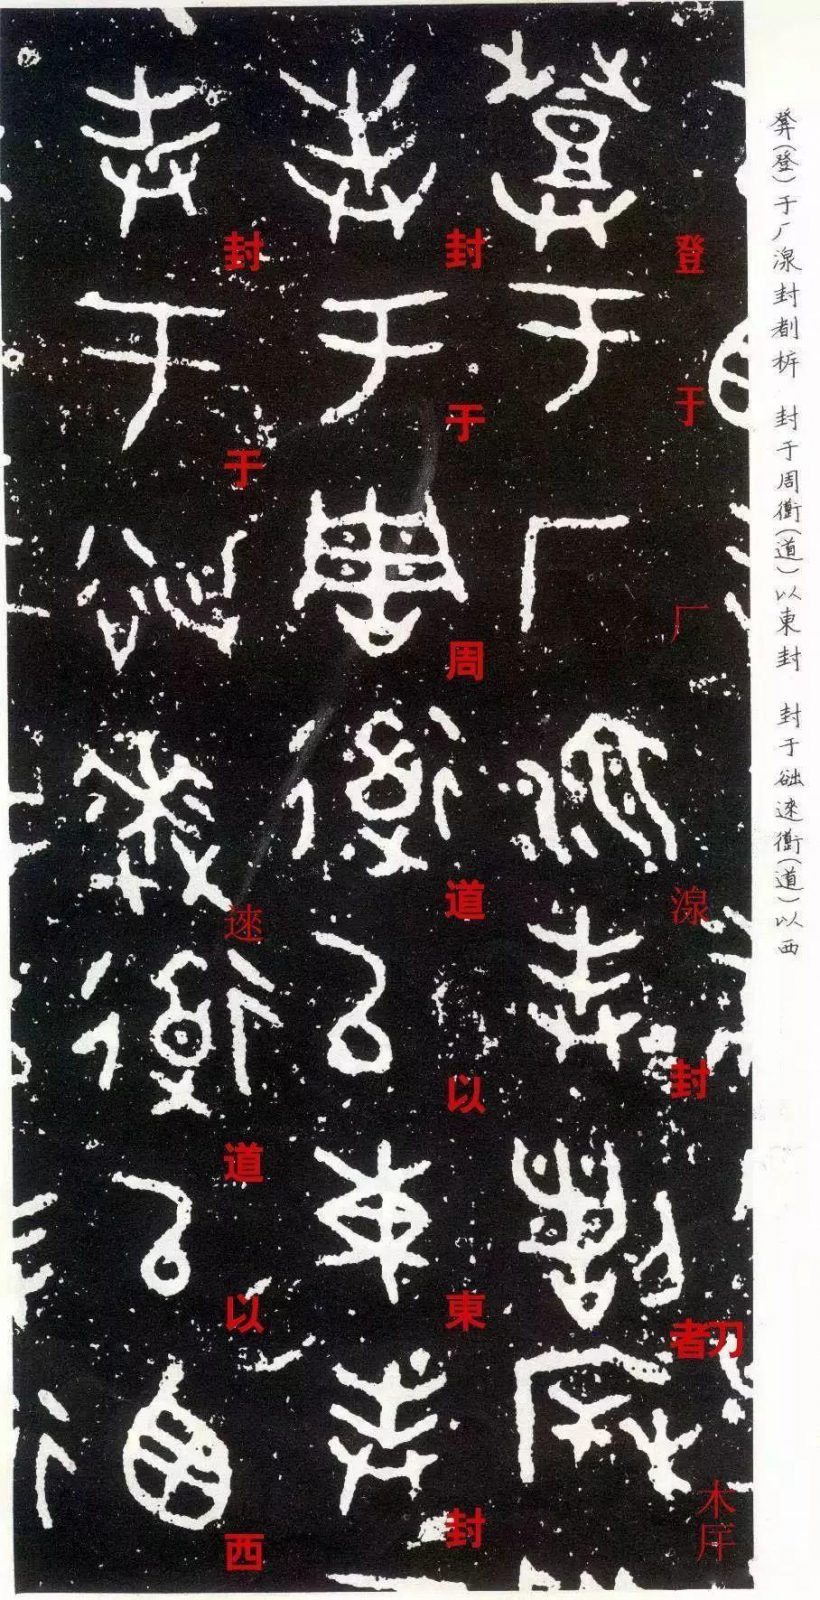 (登)于厂湶封 封于周衜(道)以東封 封于逨衜(道)以西
登于厂湶封者刀木厈
封于周道以東封
封于逨道以西